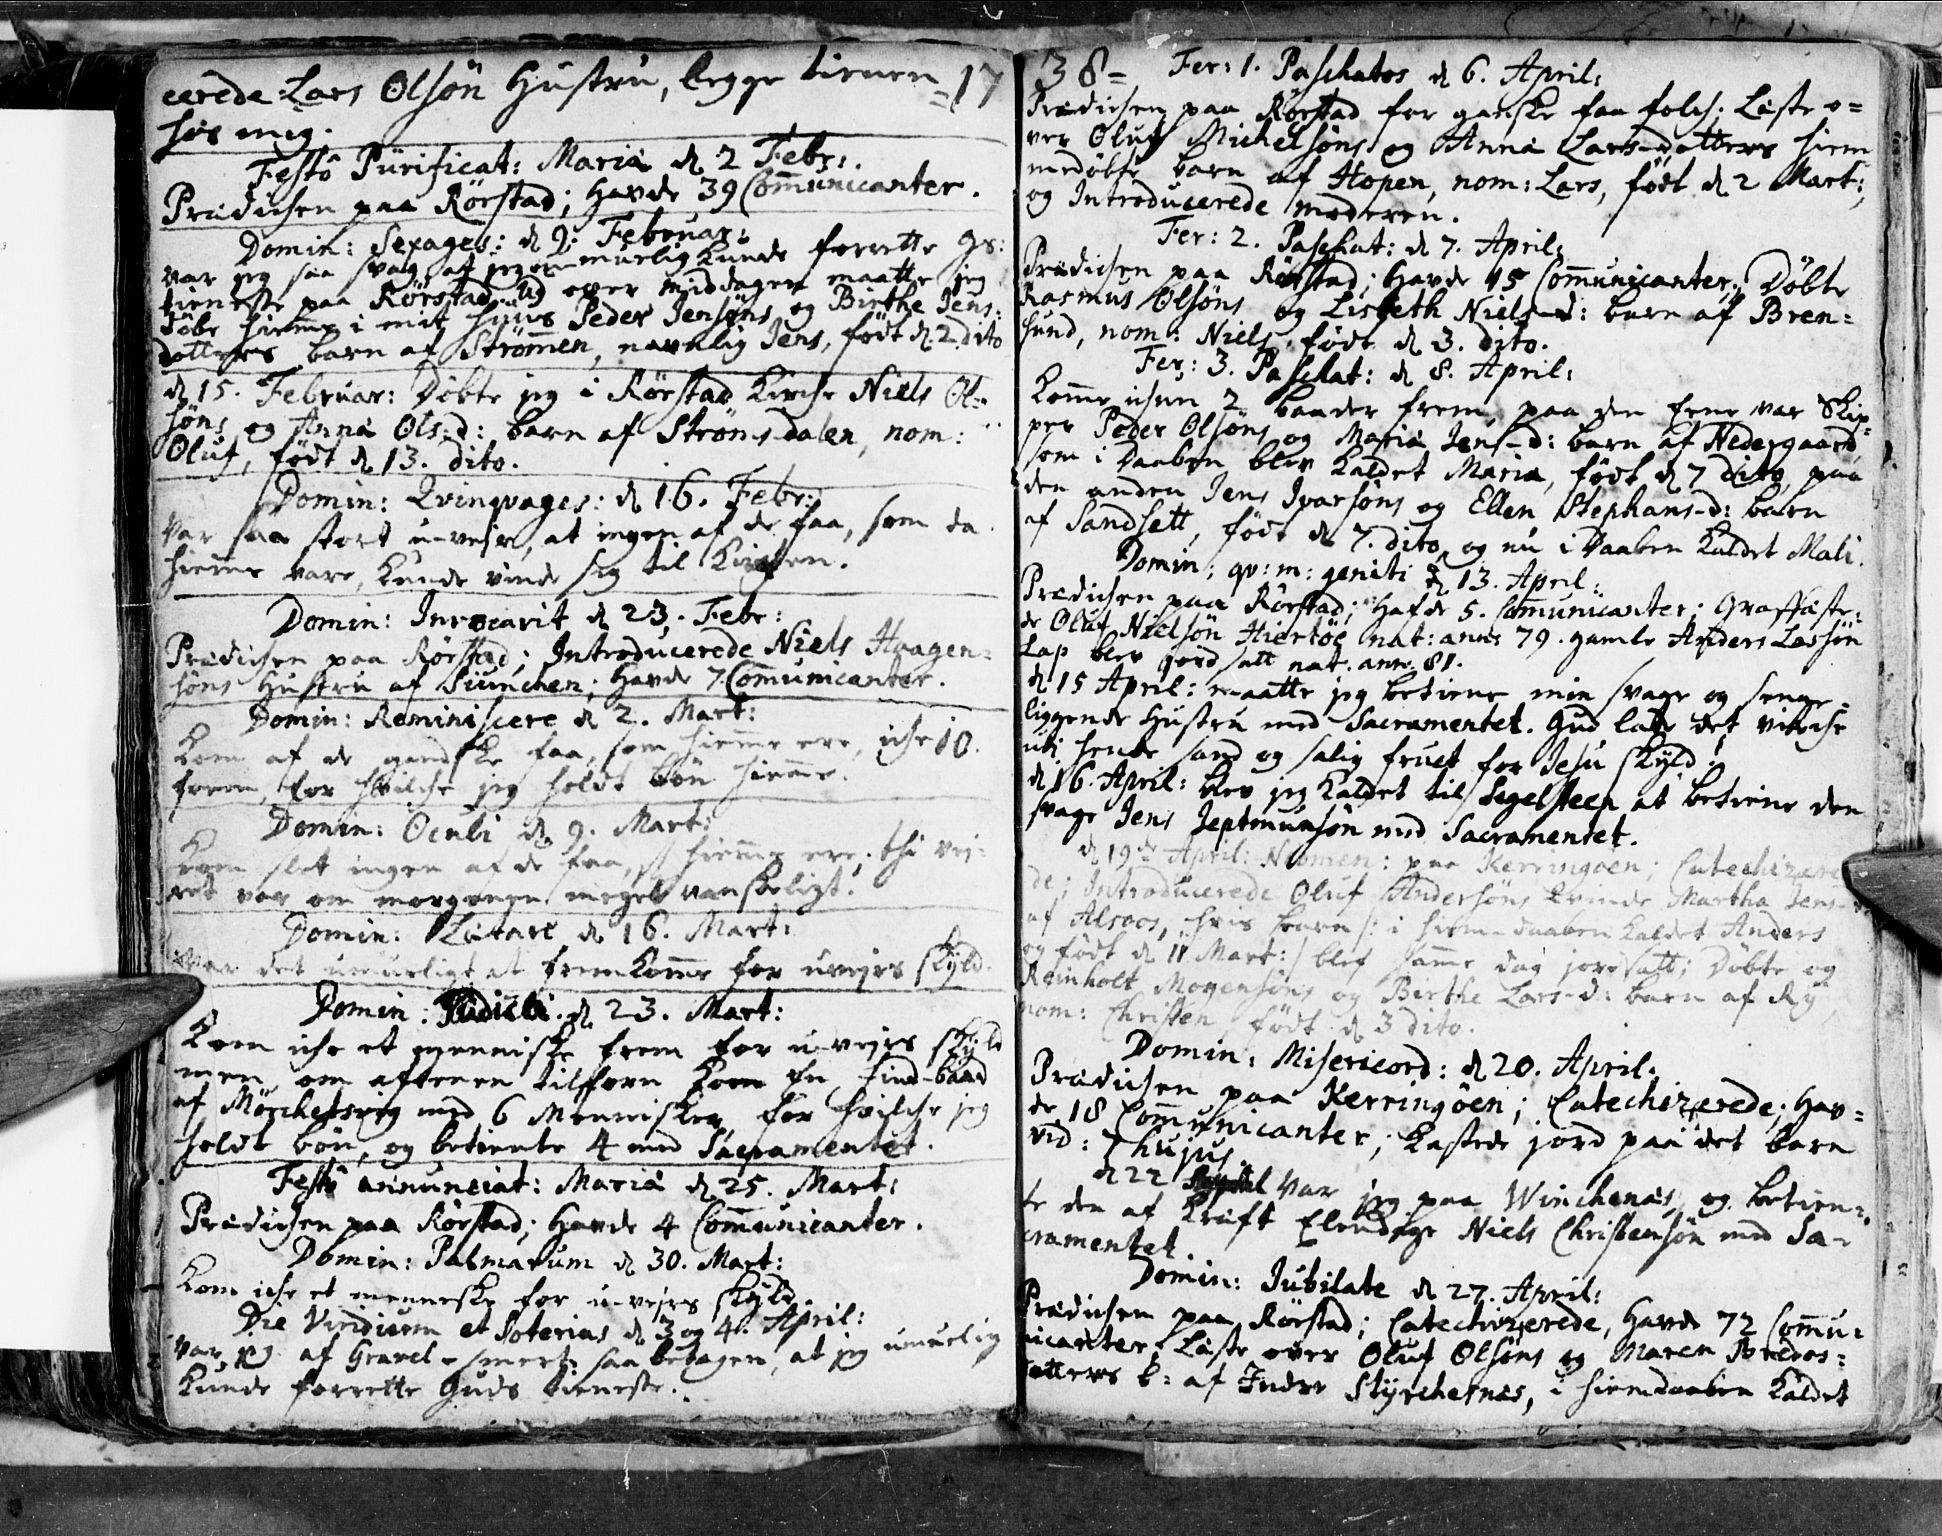 cerede Lars Olsön Hustru, begge tienen =17
hos mig.
Festô Pürificat: Mariä d 2 Febr:.
Prædichen paa Rörstad; Havde 39 Com̄unicanter.
Domin: Sexages: d 9. Februar:
var jeg saa svag at jeg u-muelig kunde forrette Gs:
tieneste paa Rörstad, over middagen maatte jeg
döbe hieme i mit Huus Peder Jensöns og Birthe Jens:
dotters barn af Strömen, navnlig Jens, födt d 2 dito
d 15. Februar: Döbte jeg i Rörstad Kirche Niels Ol=
söns og Anna Ols-d: barn af Ströms-dalen, nom:
Oluf, födt d 13. dito.
Domin: Qvinqvages: d 16. Febr:
var saa stort u-veir, at ingen af de faa, som da
hieme vare, kunde vinde sig til Kirchen.
Domin: Invocavit d 23. Febr:
Prædichen paa Rörstad; Introducerede Niels Haagen=
söns Hustru af; Havde 7 Com̄unicanter.
Domin: Reminiscere d 2. Mart:
Kom af de gandske faa, som hieme ere, iche 10.
frem, for hvilche jeg holdt bön hieme.
Domin: Oculi d 9. Mart:
Kom slet ingen af de faa, hieme ere; thi vei=
ret var om morgenen meget vanskeligt.
Domin: Lætare d 16. Mart:
Var det umueligt at fremkomme for uveirs skyld.
Domin: Judica d 23. Mart:
Kom iche et menniske frem for u-veyrs skyld
men om aftenen tilforn kom en Find-baad
af Mörchesvig med 6 Mennisker, for hvilche jeg
holdt bön, og betiente 4 med Sacramentet.
Festô annunciat: Mariä d 25. Mart:
Prædichen paa Rörstad; Havde 4 Com̄unicanter.
Domin: Palmarum d 30. Mart:
Kom iche et menneske for u-veyrs skyld.
Die Viridium et Soterias d 3 og 4. April:
var jeg af Gravel-smerte saa betagen, at jeg umuelig
kunde forrette Guds tieneste.
38= Fer: 1. Paschatos d 6. April:
Prædichen paa Rörstad for ganske faa folch; Læste o=
ver Oluf Michelsöns og Anna Lars-dotters hiem=
medöbte barn af Hopen, nom: Lars, födt d 2 Mart:
og Introducerede moderen.
Fer: 2. Paschat: d 7. April:
Prædichen paa Rörstad; Havde 15 Com̄unicanter; Döbte
Rasmus Olsöns og Lisbeth Niels-d: barn af Bren=
sund, nom: Niels, födt d 3. dito.
Fer: 3. Paschat: d 8. April:
Komme ichun 2 baader frem, paa den eene var Skip=
per Peder Olsöns og Maria Jens-d: barn af Nedergaard
som i Daaben blev kaldet Maria, födt d 7 dito, paa
den anden Jens Ivarsöns og Ellen Stephans-d: barn
af Sandsett, födt d 7. dito og nu i Daaben kaldet Mali.
Domin: qv: m: geniti d 13. April:
Prædichen paa Rörstad; Hafde 5. Com̄unicanter; Graffæste=
de Oluf Nielsön Hiertöe nat: anno 79. gamle Anders Lassön
Lap blev jord satt nat. ann: 81.
d 15 April: maatte jeg betiene min svage og senge=
liggende Hustru med Sacramentet. Gud lade det virche
udi hende sand og salig fruct for Jesu skyld!
d 16. April: blev jeg kaldet til Segelsteen at betiene den
svage Jens Jeptmunsön med Sacramentet.
d 19de April: paa Kerringöen; Catechizere
de; Introducerede Oluf Andersöns Kvinde Martha Jens-d:
af Alsoos, hvis barn /: i hieme-daaben kaldet Anders
og födt d 11 Mart: / blef samme dag jordsatt; Döbte og
Reinholt Mogensöns og Berthe Lars-d: barn af Ry
nom: Christen födt d 3 dito.
Domin: Misericord: d 20. April:
Prædichen paa Kerringöen; Catechizerede; Hav=
de 18 Com̄unicanter; kastede jord paa det barn
vid: 7 hujus
d 22 April Var jeg paa Winchenæs, og betien=
te den af Kræft Elendige Niels Christensön med Sa-
cramentet.
Domin: Jubilate d 27. April:
Prædichen paa Rörstad; Catechizerede, Havde 72 Com̄u=
nicanter. Læste over Oluf Olsöns og Maren Pedrs=
dotters b: af Indre Styrchesnæs, i hiemdaaben kaldet